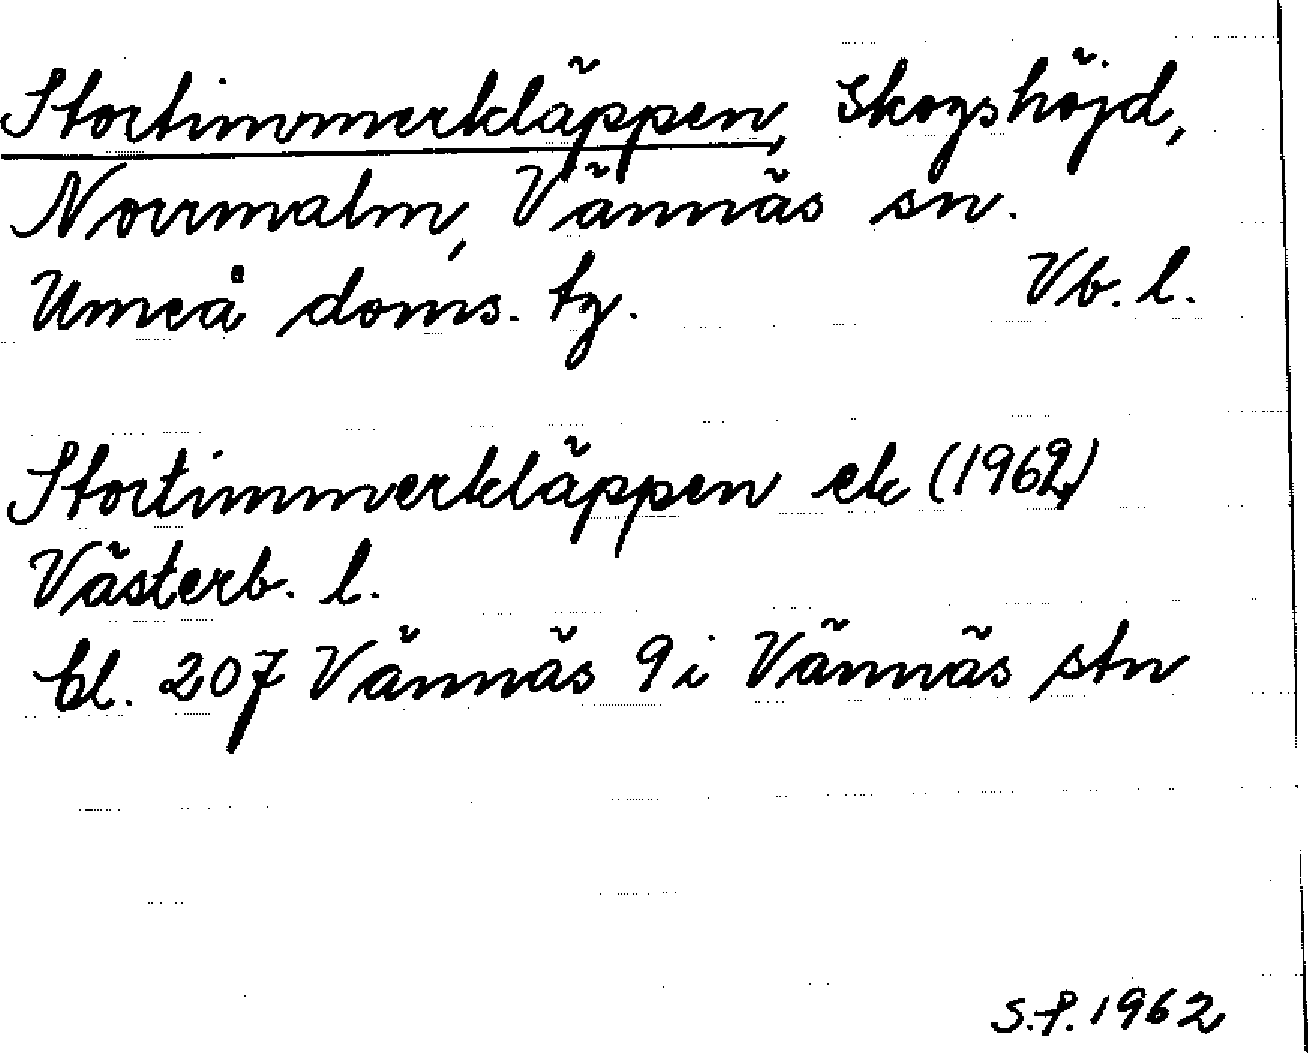 Stortimmerkläppen, Skogshöjd,
Norrmalm, Vännäs sn.
Umeå doms. tg. Vb. l.
Stortimmerkläppen ek (1962)
Västerb. l.
bl. 207 Vännäs 9 i Vännäs stn
S.P. 1962